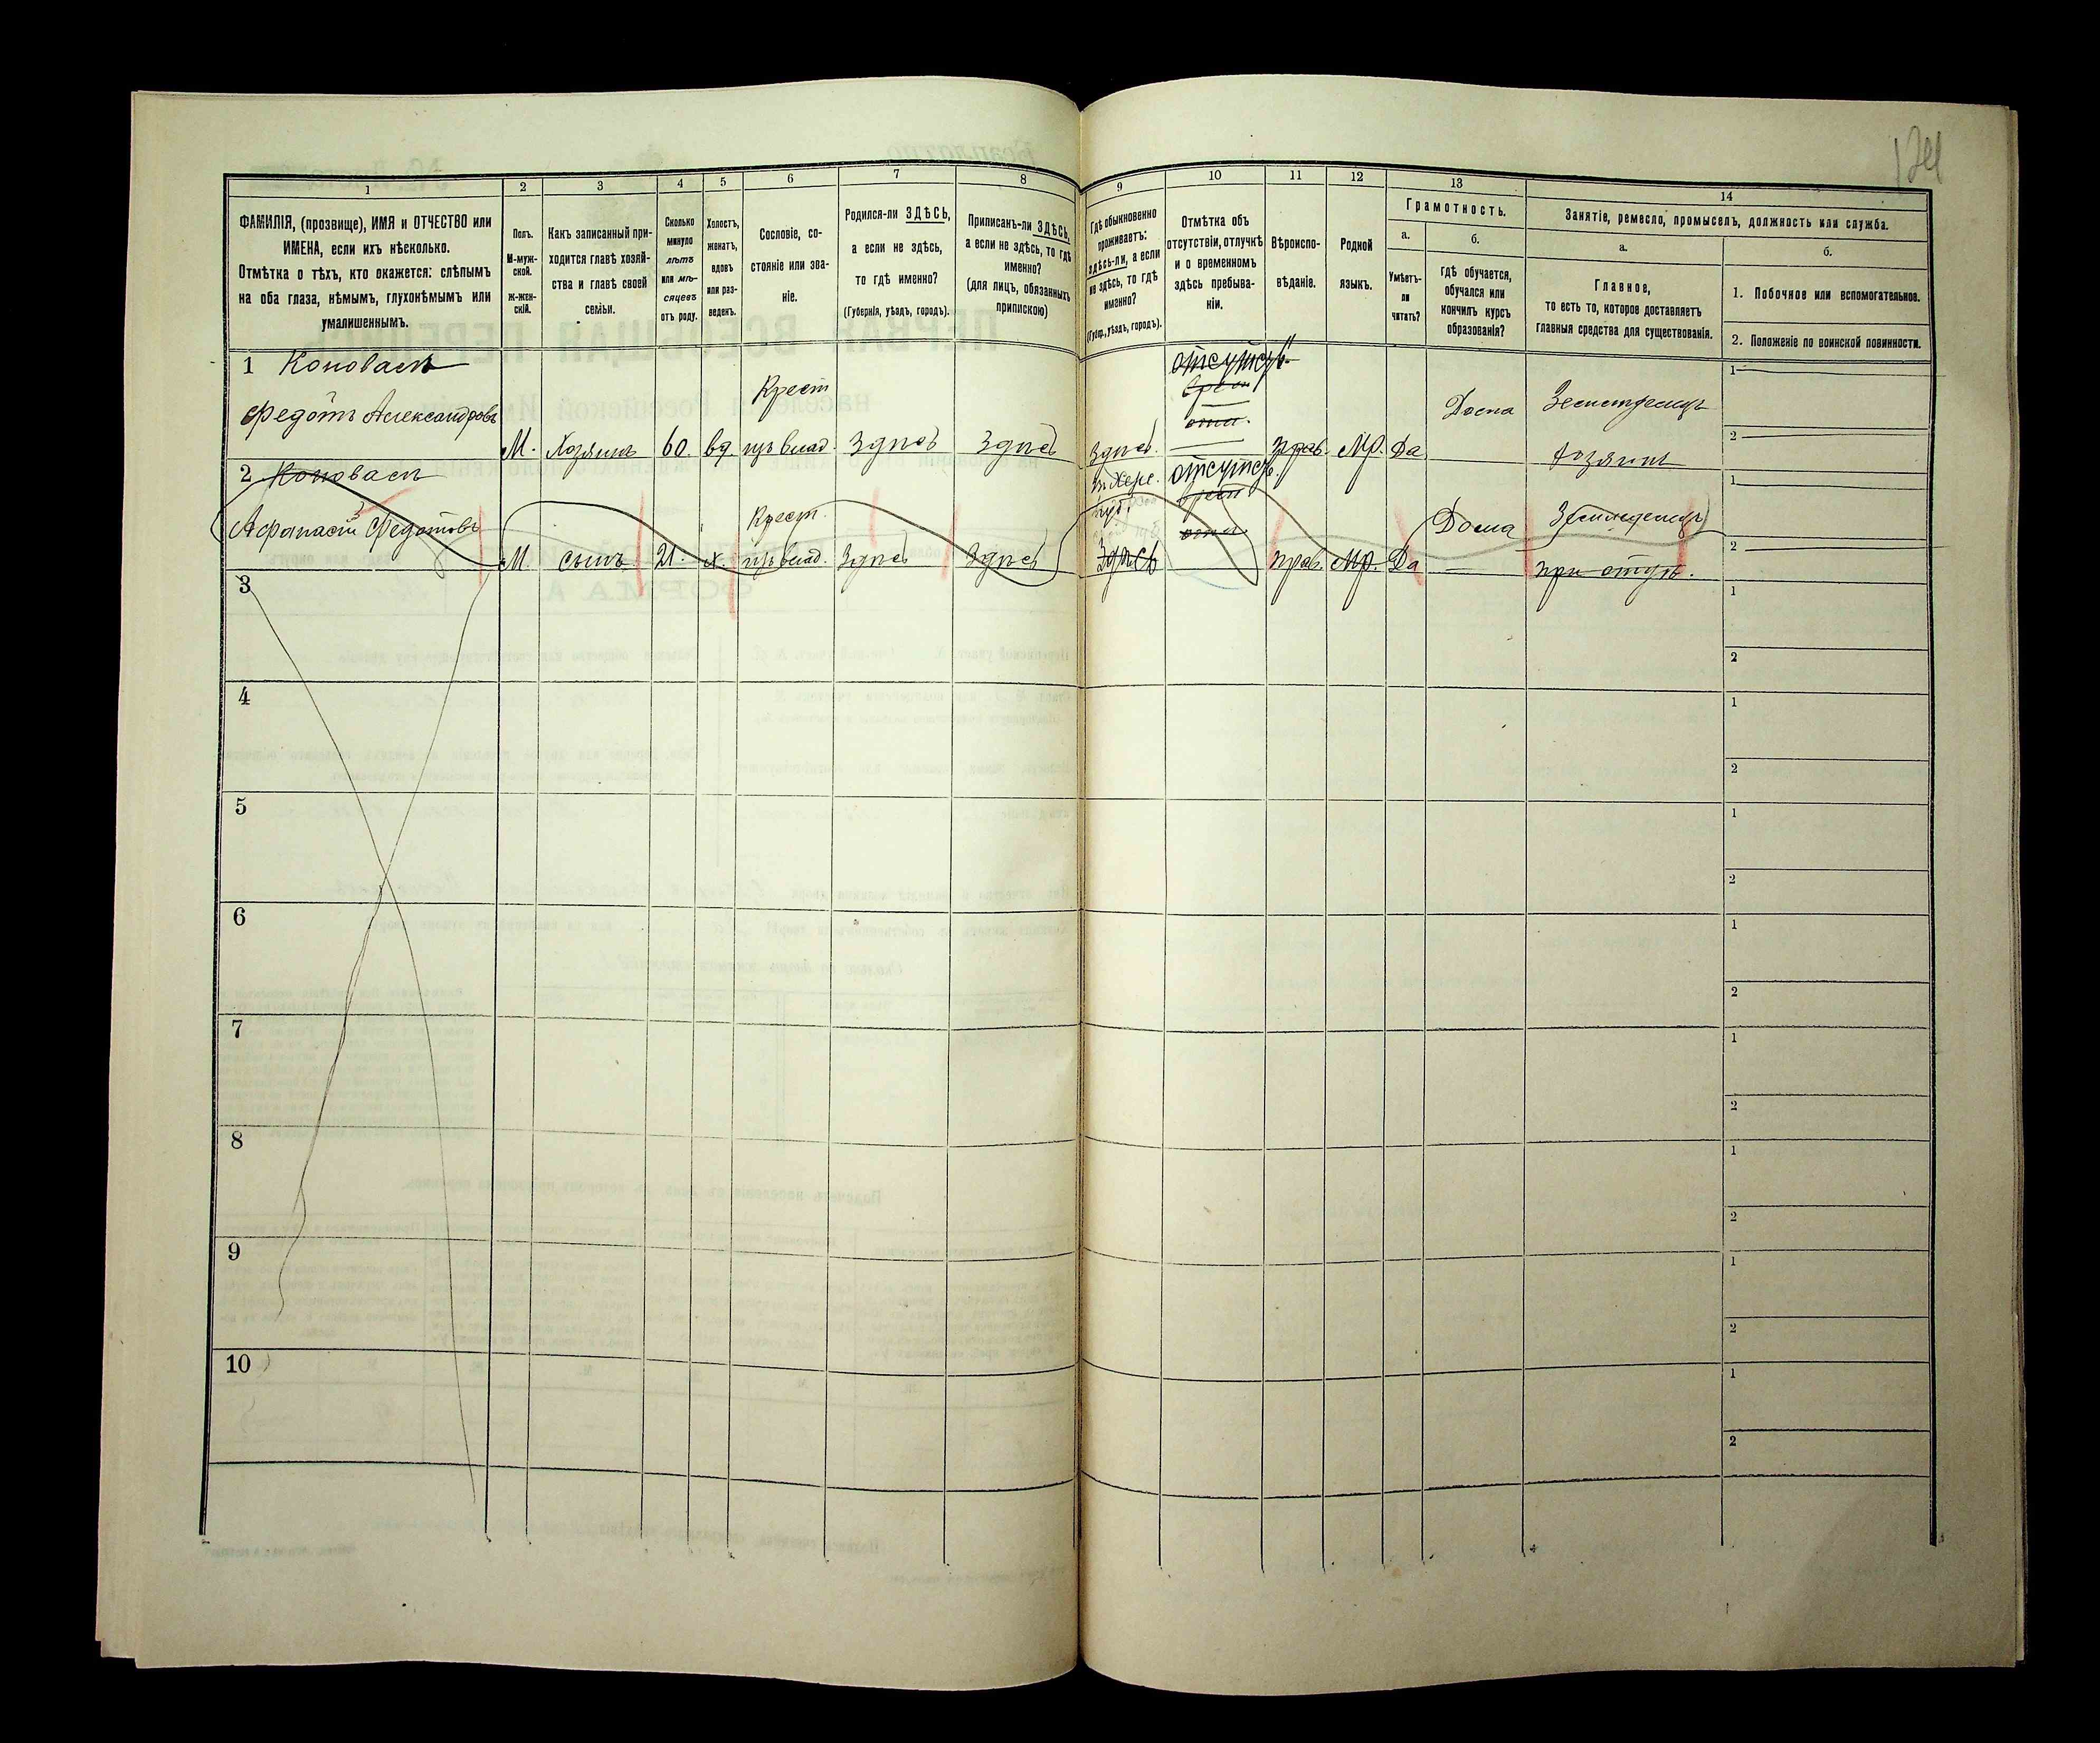 124
1 2 3 4 5 6 7 8 9 10 11 12 13 14
ФАМИЛІЯ, (прозвище), ИМЯ и ОТЧЕСТВО или
ИМЕНА, если ихъ нѣсколько.
Отмѣтка о тѣхъ, кто окажется: слѣпымъ
на оба глаза, нѣмымъ, глухонѣмымъ или
умалишеннымъ.
Полъ.
М-муж-
ской.
Ж-жен-
скій.
Какъ записанный при-
ходится главѣ хозяй-
ства и главѣ своей
семьи.
Сколько
минуло
лѣтъ
или мѣ-
сяцевъ
отъ роду.
Холостъ,
женатъ,
вдовъ
или раз-
веденъ.
Сословіе, со-
стояніе или зва-
ніе.
Родился-ли ЗДѢСЬ,
а если не здѣсь,
то гдѣ именно?
(Губернія, уѣздъ, городъ).
Приписанъ-ли ЗДѢСЬ,
а если не здѣсь, то гдѣ
именно?
(для лицъ, обязанныхъ
припискою)
Гдѣ обыкновенно
проживаетъ:
здѣсь-ли, а если
не здѣсь, то гдѣ
именно?
(Губер., уѣздъ, городъ).
Отмѣтка объ
отсутствіи, отлучкѣ
и о временномъ
здѣсь пребыва-
ніи.
Вѣроиспо-
вѣданіе.
Родной
языкъ.
Грамотность.
а.
Умѣетъ-
ли
читать?
б.
гдѣ обучается,
обучался или
кончилъ курсъ
образованія?
Занятіе, ремесло, промыселъ, должность или служба.
а.
Главное,
то есть то, которое доставляетъ
главныя средства для существованія.
б.
1. Побочное или вспомогательное.
2. Положеніе по воинской повинности.
1 Коновалъ
Федотъ Александровъ
М. Хозяинъ 60. вд. Крест
изъ влад. Здѣсь Здѣсь Здѣсь. отсутсв.
прав. Мр. Да Дома Земледелецъ
хозяинъ
1
2
2 Коновалъ
Афанасій Федотовъ
М. сынъ 21. х. Крест.
изъ влад. Здѣсь Здѣсь
губ.
Здѣсь отсутсв.
прав. Мр. Да Дома Земледелецъ
при отцѣ.
1
2
3 1
2
4 1
2
5 1
2
6 1
2
7 1
2
8 1
2
9 1
2
10 1
2